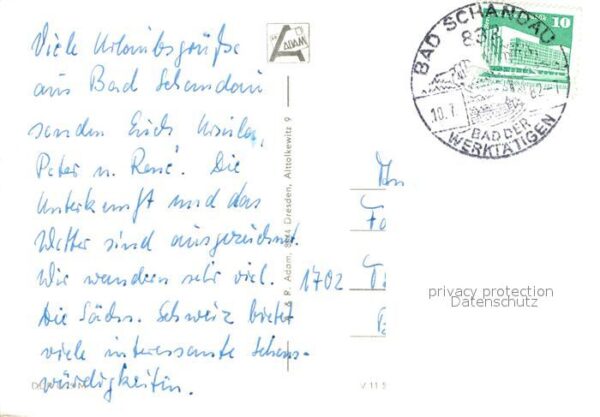 Viele Urlaubsgrüße
aus Bad Schandau
senden Euch Ursula,
Peter u. René. Die
Unterkunft und das
Wetter sind ausgezeichnet.
Wir wandern sehr viel.
Die Sächs. Schweiz bietet
viele interessante Sehens-
würdigkeiten.
A ADAM
& R. Adam, 8044 Dresden, Alttolkewitz 9
V 11 5
10
BAD SCHANDAU
832
10.7. 82-
BAD DER
WERKTÄTIGEN
An
Fa
1702
privacy protection
Datenschutz